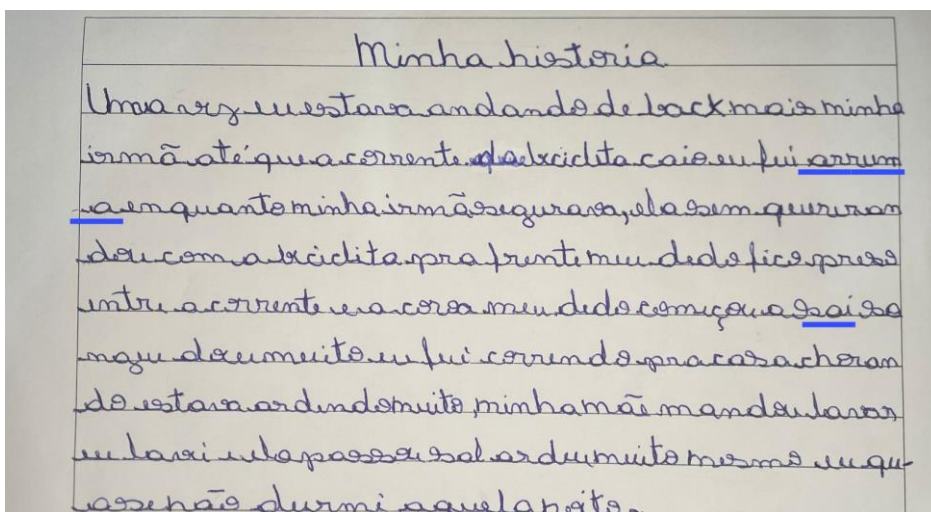 Minha historia
Uma vez eu estava andando de back mais minha
irmã até que a corrente da bicicleta caio eu fui arrum
a enquanto minha irmã segurava, ela sem querer an
dou com a bicicleta pra frente meu dedo fico preso
entre a corrente e a coroa meu dedo começou a sai sa
nge doeu muito eu fui correndo pra casa choran
do estava ardendo muito, minha mãe mandou lavar
eu lavei ela passou sal ardeu muito mesmo eu qu-
ase não durmi aquela noite.